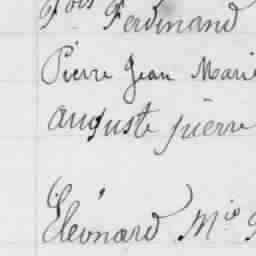 Fois Ferdinand
Pierre Jean Marie
auguste pierre
Léonard Mie